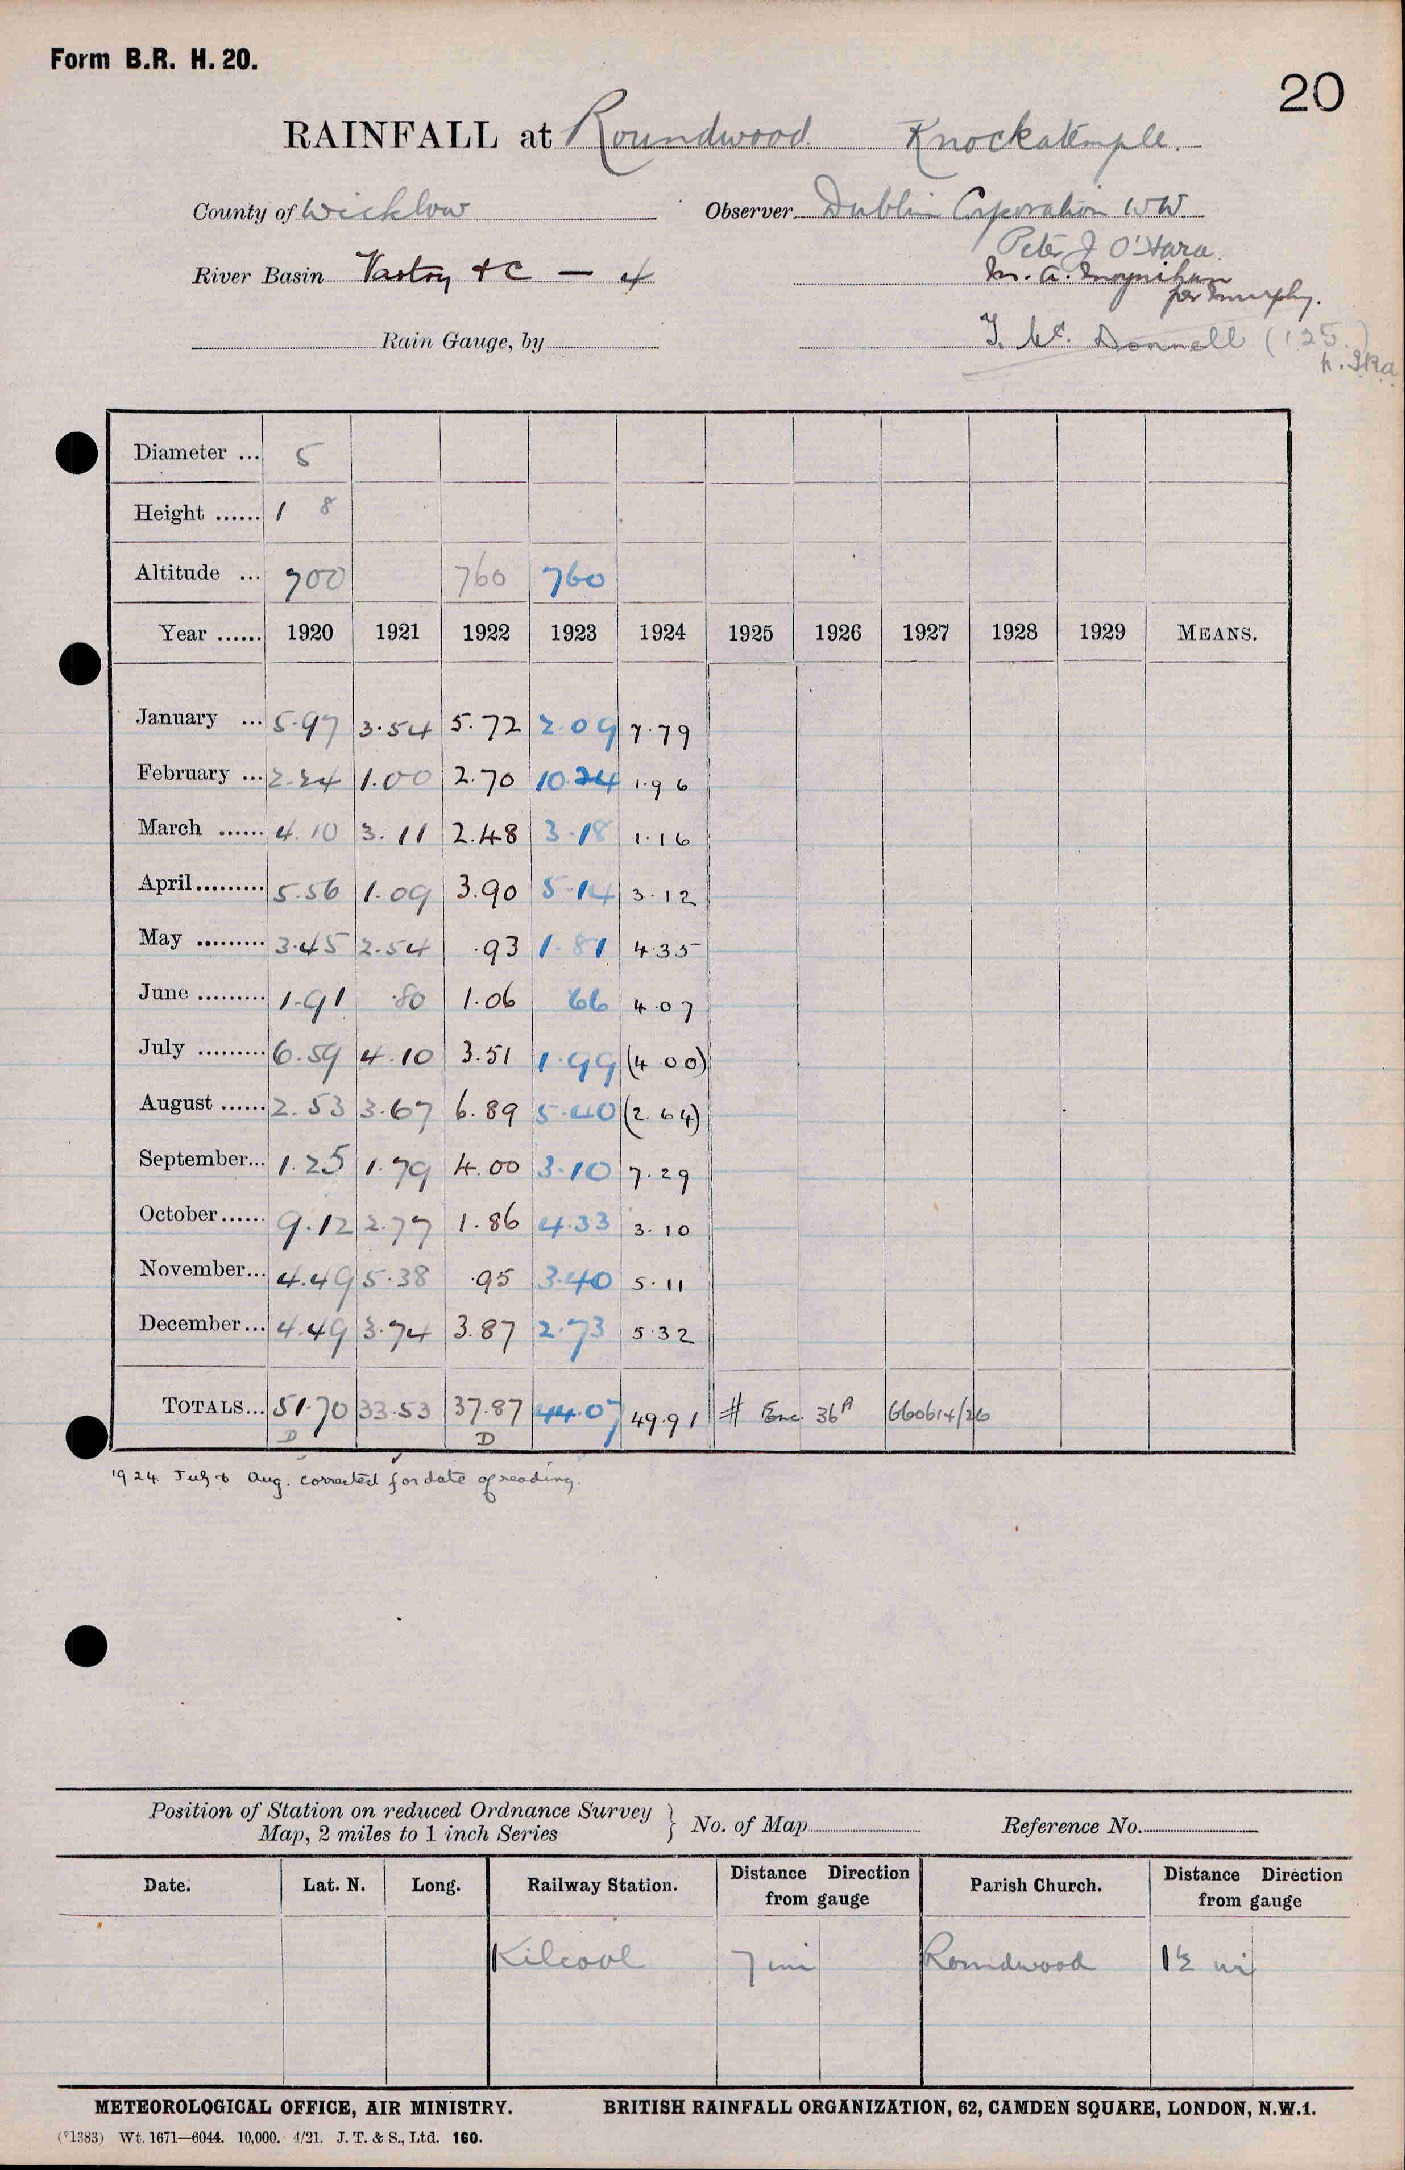 Form B.R. H. 20.
20
RAINFALL at Roundwood. Knockatemple.
County of Wicklow Observer Dublin Corporation WW.
Peter J O'Hara.
River Basin Vartry & C — 4 M. A. Moynihan
per Murphy.
Rain Gauge, by T. Mc. Donnell (125.)
Diameter ... 5
Height ...... 1 8
Altitude ... 700 760 760
Year ...... 1920 1921 1922 1923 1924 1925 1926 1927 1928 1929 MEANS.
January ... 5.97 3.54 5.72 2.09 7.79
February ... 2.24 1.00 2.70 10.24 1.96
March ...... 4.10 3.11 2.48 3.18 1.16
April ......... 5.56 1.09 3.90 5.14 3.12
May ......... 3.45 2.54 .93 1.81 4.35
June ......... 1.91 .80 1.06 66 4.07
July ......... 6.59 4.10 3.51 1.99 (4.00)
August ...... 2.53 3.67 6.89 5.40 (2.64)
September... 1.25 1.79 4.00 3.10 7.29
October...... 9.12 2.77 1.86 4.33 3.10
November... 4.49 5.38 .95 3.40 5.11
December... 4.49 3.74 3.87 2.73 5.32
TOTALS... 51.70 33.53 37.87 44.07 49.91 # Enc. 36A 660614/26
D D
1924 July & Aug. corrected for date of reading.
Position of Station on reduced Ordnance Survey
Map, 2 miles to 1 inch Series } No. of Map Reference No.
Date. Lat. N. Long. Railway Station. Distance Direction from gauge Parish Church. Distance Direction from gauge
Kilcool 7 mi Roundwood 1½ mi
METEOROLOGICAL OFFICE, AIR MINISTRY. BRITISH RAINFALL ORGANIZATION, 62, CAMDEN SQUARE, LONDON, N.W.1.
(*1383) Wt. 1671—6044. 10,000. 4/21. J. T. & S., Ltd. 160.